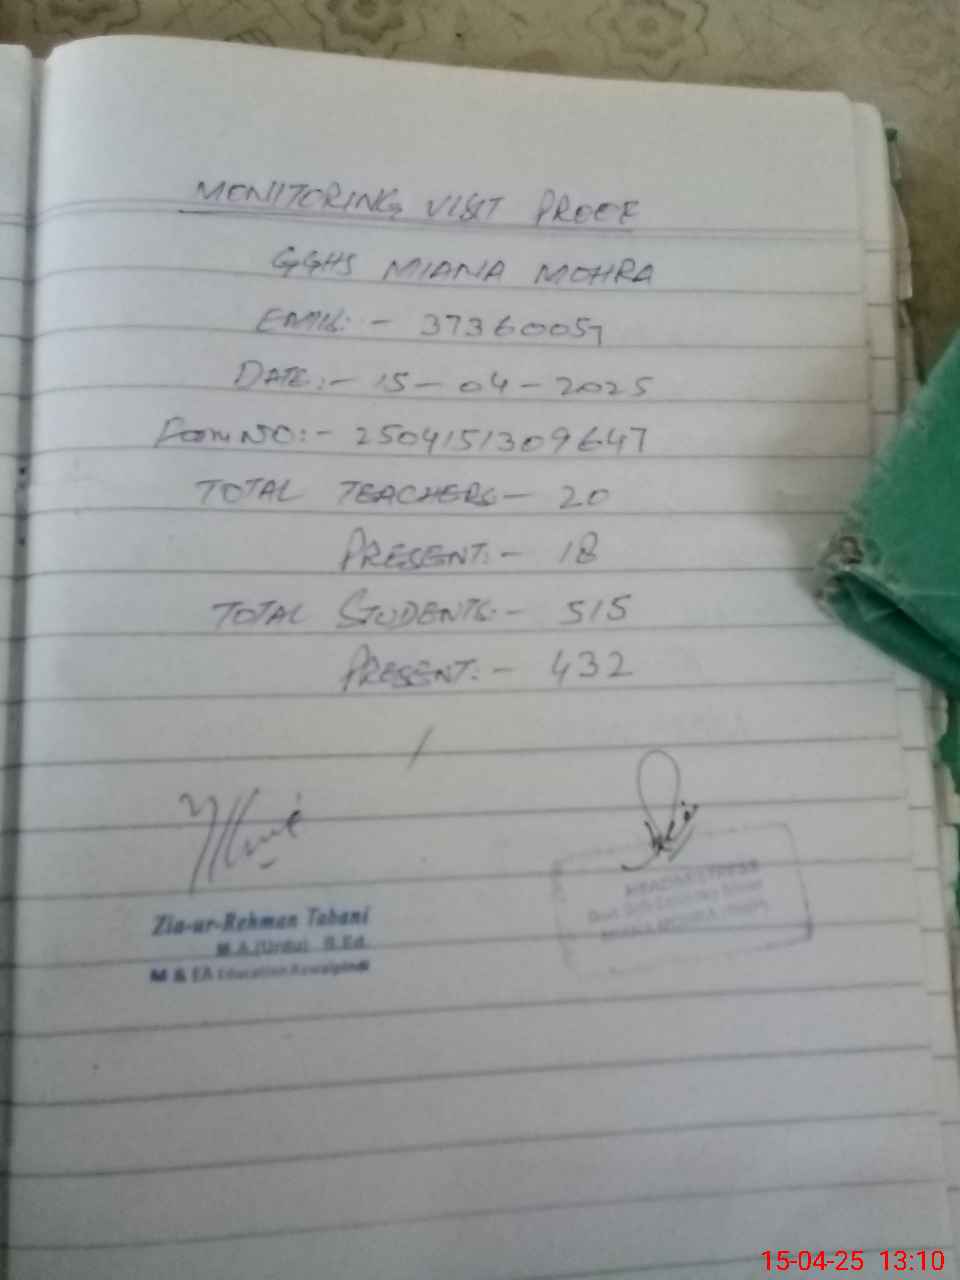 MONITORING VISIT PROOF
GGHS MIANA MOHRA
EMIS:- 37360057
DATE:- 15-04-2025
Form NO:- 2504151309647
TOTAL TEACHERS- 20
PRESENT:- 18
TOTAL STUDENTS:- 515
PRESENT:- 432
Zia-ur-Rehman Tabani
M.A (Urdu) B.Ed.
M & EA Education Rawalpindi
HEADMISTRESS
MIANA MOHRA
15-04-25 13:10